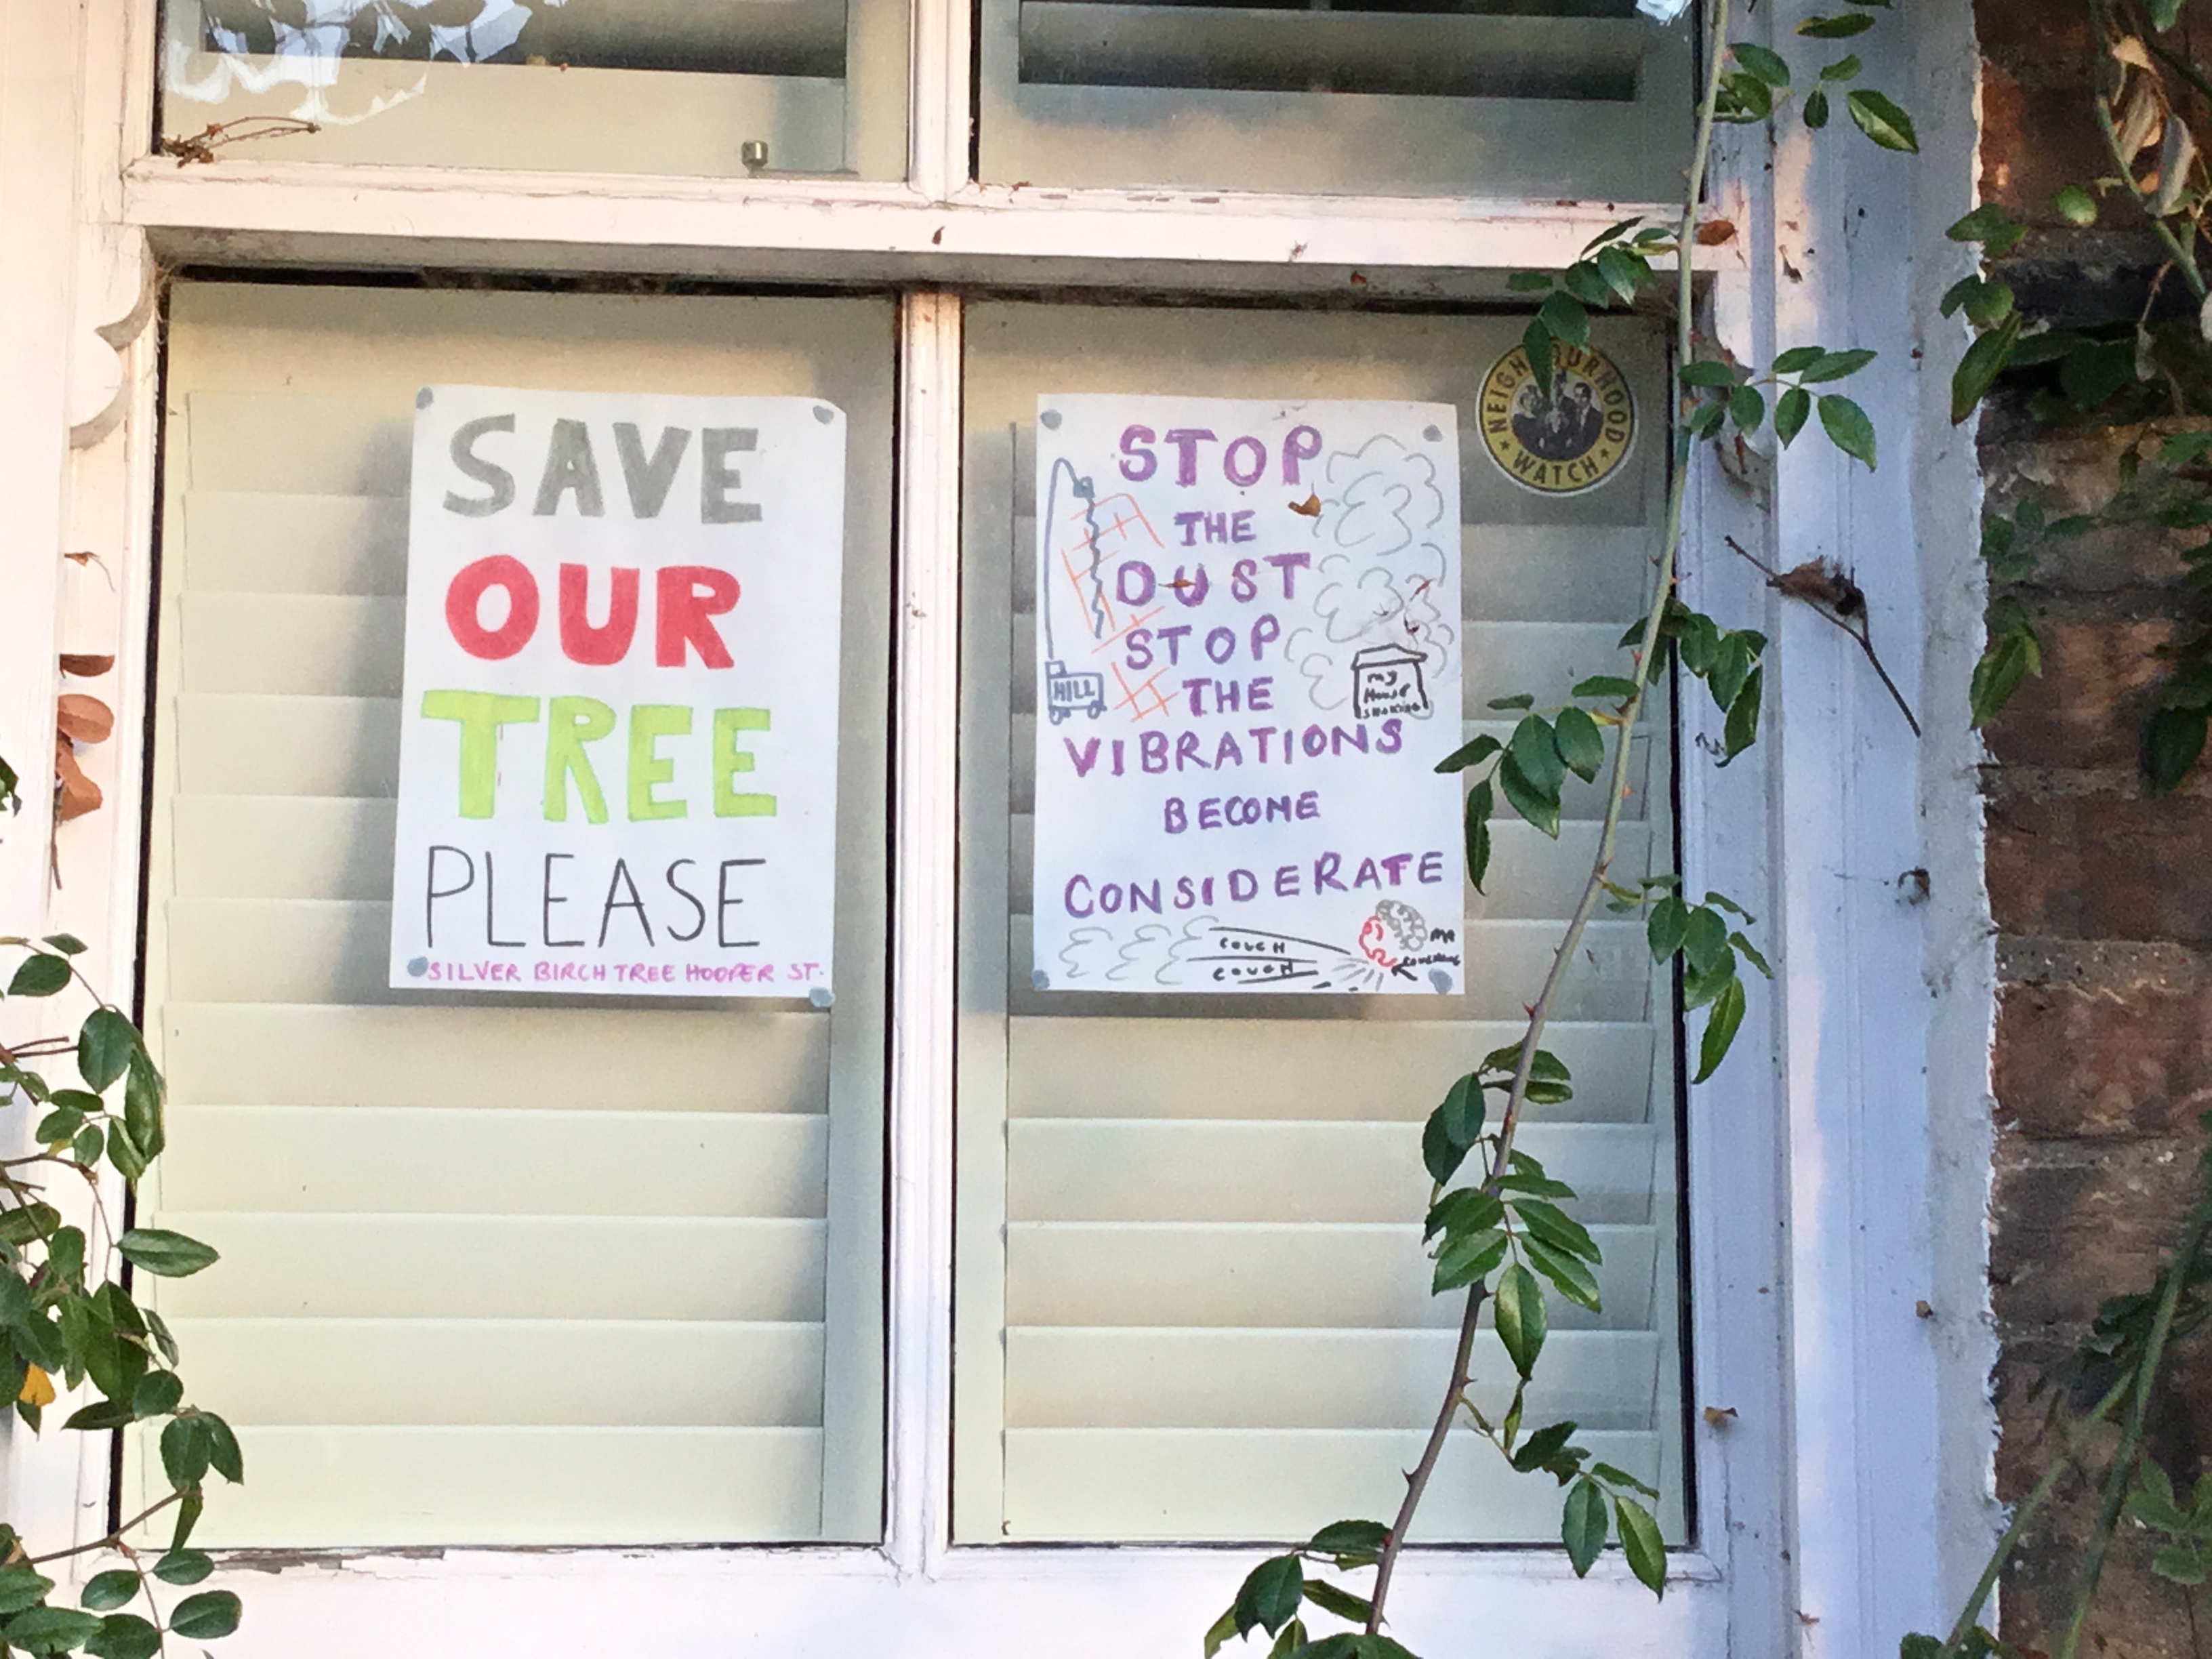 SAVE
OUR
TREE
PLEASE
SILVER BIRCH TREE HOOPER ST.
STOP
THE
DUST
STOP
THE
VIBRATIONS
BECOME
CONSIDERATE
HILL
my
House
COUGH
COUGH
ME
NEIGHBOURHOOD
WATCH